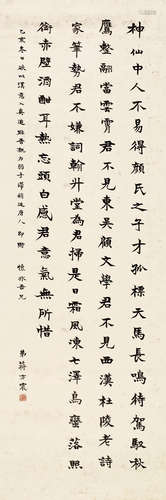 神仙中人不易得顏氏之子才孤標天馬長鳴待駕馭秋
鷹整翮當雲霄君不見東吳顧文學君不見西漢杜陵老詩
家筆勢君不嫌詞翰升堂為君掃是日霜風凍七澤烏蠻落照
銜赤壁酒酣耳熱忘頭白感君意氣無所惜
乙亥冬日以漢意入真
吾兄
弟蔣方震